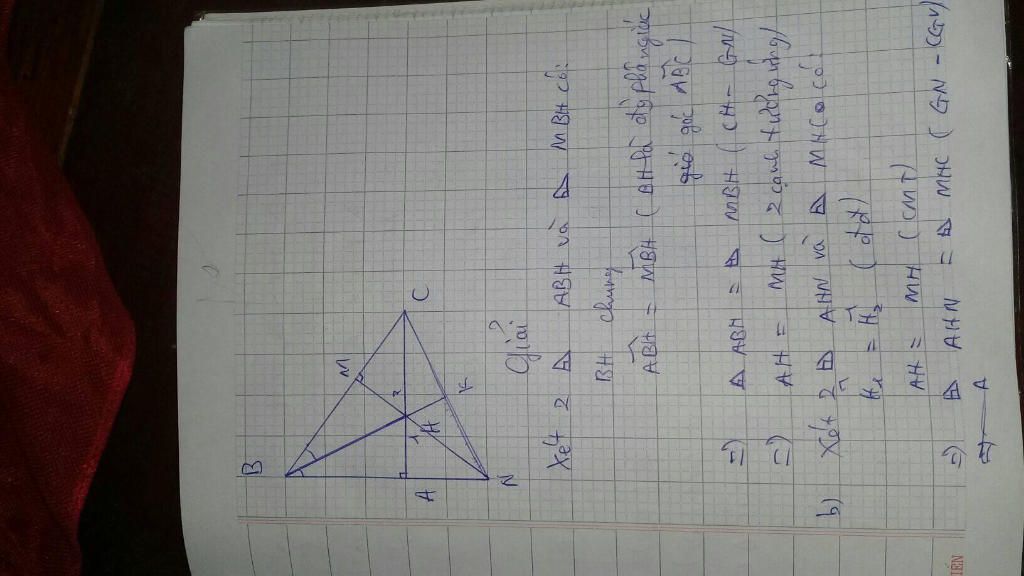 B
M
C
2
1
H
K
A
N
Giải
Xét 2 Δ ABH và Δ MBH có:
BH chung
ABH = MBH ( BH là đg phân giác
góc ABC)
=) Δ ABH = Δ MBH ( CH - GN)
=) AH = MH ( 2 cạnh tương ứng)
b) Xét 2 Δ AHN và Δ MHC có:
H1 = H2 ( đđ)
AH = MH ( CMT)
=) Δ AHN = Δ MHC ( GN - CGV)